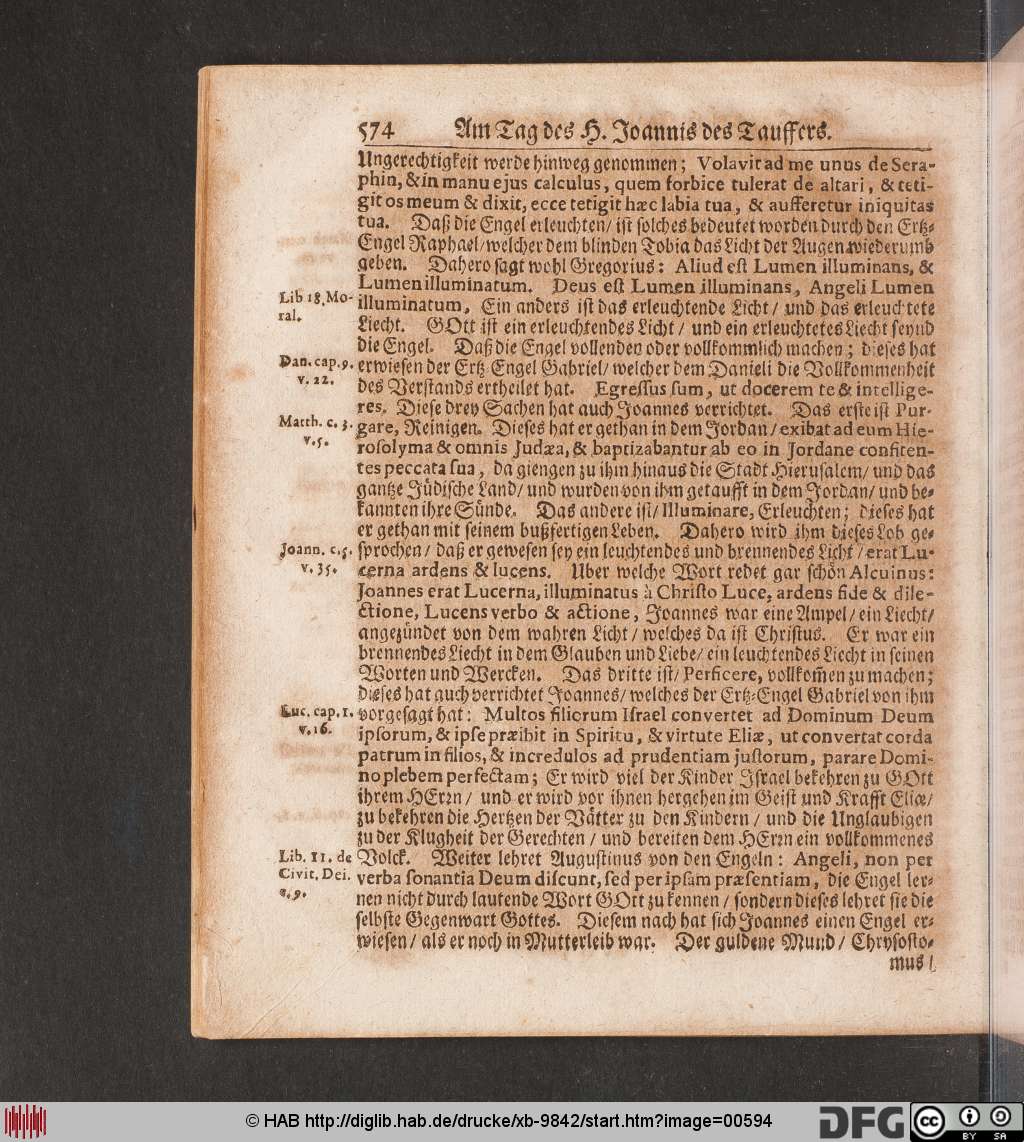 574 Am Tag des H. Joannis des Tauffers.
Ungerechtigkeit werde hinweg genommen; Volavit ad me unus de Sera-
phin, & in manu ejus calculus, quem forbice tulerat de altari, & teti-
git os meum & dixit, ecce tetigit hæc labia tua, & aufferetur iniquitas
tua. Daß die Engel erleuchten/ ist solches bedeutet worden durch den Ertz-
Engel Raphael/ welcher dem blinden Tobia das Licht der Augen wiederumb
geben. Dahero sagt wohl Gregorius: Aliud est Lumen illuminans, &
Lumen illuminatum. Deus est Lumen illuminans, Angeli Lumen
Lib 18. Mo-
ral.
illuminatum, Ein anders ist das erleuchtende Licht/ und das erleuchtete
Liecht. GOtt ist ein erleuchtendes Licht/ und ein erleuchtetes Liecht seynd
die Engel. Daß die Engel vollenden oder vollkommlich machen; dieses hat
Dan. cap. 9.
v. 22.
erwiesen der Ertz-Engel Gabriel/ welcher dem Danieli die Vollkommenheit
des Verstands ertheilet hat. Egressus sum, ut docerem te & intellige-
res. Diese drey Sachen hat auch Joannes verrichtet. Das erste ist Pur-
Matth. c. 3.
v. 5.
gare, Reinigen. Dieses hat er gethan in dem Jordan/ exibat ad eum Hie-
rosolyma & omnis Judæa, & baptizabantur ab eo in Jordane confiten-
tes peccata sua, da giengen zu ihm hinaus die Stadt Hierusalem/ und das
gantze Jüdische Land/ und wurden von ihm getaufft in dem Jordan/ und be-
kannten ihre Sünde. Das andere ist/ Illuminare, Erleuchten; dieses hat
er gethan mit seinem bußfertigen Leben. Dahero wird ihm dieses Lob ge-
Joann. c. 5.
v. 35.
sprochen/ daß er gewesen sey ein leuchtendes und brennendes Licht/ erat Lu-
cerna ardens & lucens. Uber welche Wort redet gar schön Alcuinus:
Joannes erat Lucerna, illuminatus à Christo Luce, ardens fide & dile-
ctione, Lucens verbo & actione, Joannes war eine Ampel/ ein Liecht/
angezündet von dem wahren Licht/ welches da ist Christus. Er war ein
brennendes Liecht in dem Glauben und Liebe/ ein leuchtendes Liecht in seinen
Worten und Wercken. Das dritte ist/ Perficere, vollkom̃en zu machen;
dieses hat auch verrichtet Joannes/ welches der Ertz-Engel Gabriel von ihm
Luc. cap. 1.
v. 16.
vorgesagt hat: Multos filiorum Israel convertet ad Dominum Deum
ipsorum, & ipse præibit in Spiritu, & virtute Eliæ, ut convertat corda
patrum in filios, & incredulos ad prudentiam justorum, parare Domi-
no plebem perfectam; Er wird viel der Kinder Israel bekehren zu GOtt
ihrem HErrn/ und er wird vor ihnen hergehen im Geist und Krafft Eliæ/
zu bekehren die Hertzen der Vätter zu den Kindern/ und die Unglaubigen
zu der Klugheit der Gerechten/ und bereiten dem HErrn ein vollkommenes
Lib. 11. de
Civit. Dei.
c. 9.
Volck. Weiter lehret Augustinus von den Engeln: Angeli, non per
verba sonantia Deum discunt, sed per ipsam præsentiam, die Engel ler-
nen nicht durch lautende Wort GOtt zu kennen/ sondern dieses lehret sie die
selbste Gegenwart Gottes. Diesem nach hat sich Joannes einen Engel er-
wiesen/ als er noch in Mutterleib war. Der guldene Mund/ Chrysosto-
mus/
© HAB http://diglib.hab.de/drucke/xb-9842/start.htm?image=00594
DFG
cc BY SA